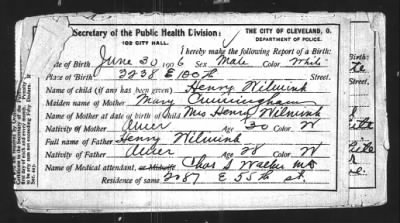 Secretary of the Public Health Division:
THE CITY OF CLEVELAND, O.
102 CITY HALL.
DEPARTMENT OF POLICE.
I hereby make the following Report of a Birth:
Date of Birth June 30 1906 Sex Male Color White
Place of Birth 3238 E 100th Street.
Name of child (if any has been given) Henry Wilwink
Maiden name of Mother Mary Cunningham
Name of Mother at date of birth of child Mrs Henry Wilwink
Nativity of Mother Amer Age 30 Color W
Full name of Father Henry Wilwink
Nativity of Father Amer Age 28 Color W
Name of Medical attendant, or Midwife Chas S Walker MD
Residence of same 2087 E 55th st.